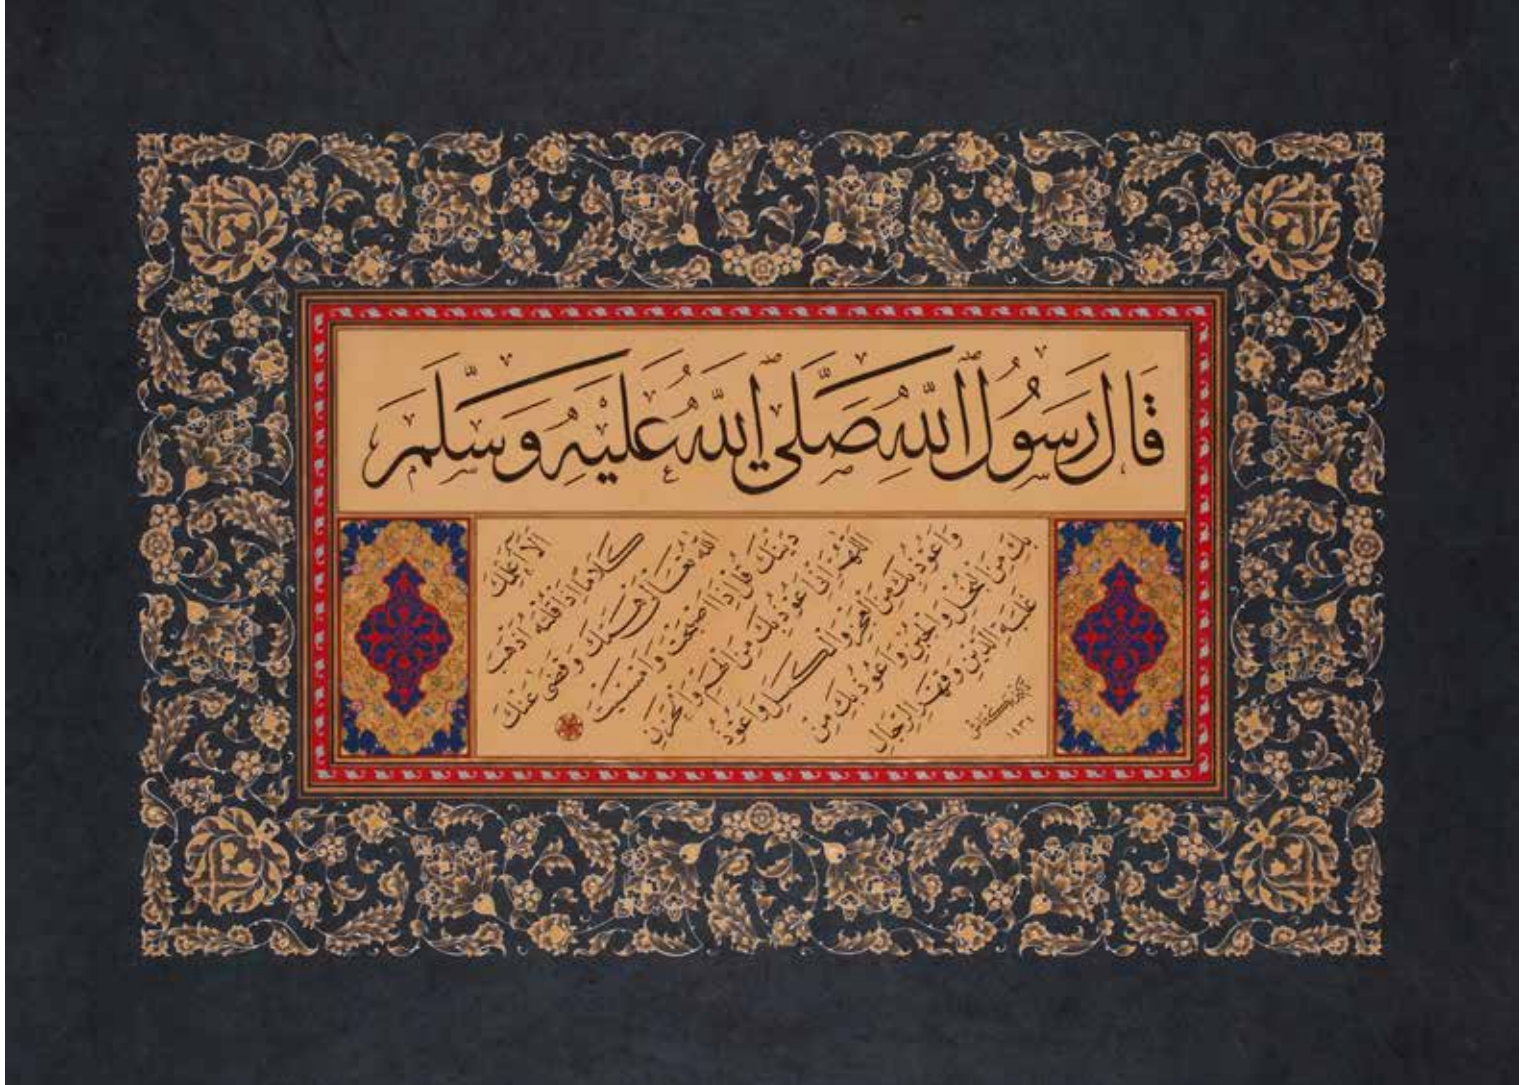 قَالَ رَسُولُ اللهِ صَلَّى اللهُ عَلَيْهِ وَسَلَّمَ
اَلَا اُعَلِّمُكَ
كَلَامًا اِذَا قُلْتَهُ اَذْهَبَ
اللهُ تَعَالَى هَمَّكَ وَقَضَى عَنْكَ
دَيْنَكَ قُلْ اِذَا اَصْبَحْتَ وَاَمْسَيْتَ
اَللّٰهُمَّ اِنِّي اَعُوذُ بِكَ مِنَ الْهَمِّ وَالْحَزَنِ
وَاَعُوذُ بِكَ مِنَ الْعَجْزِ وَالْكَسَلِ وَاَعُوذُ
بِكَ مِنَ الْبُخْلِ وَالْجُبْنِ وَاَعُوذُ بِكَ مِنْ
غَلَبَةِ الدَّيْنِ وَقَهْرِ الرِّجَالِ
١٤٣٤